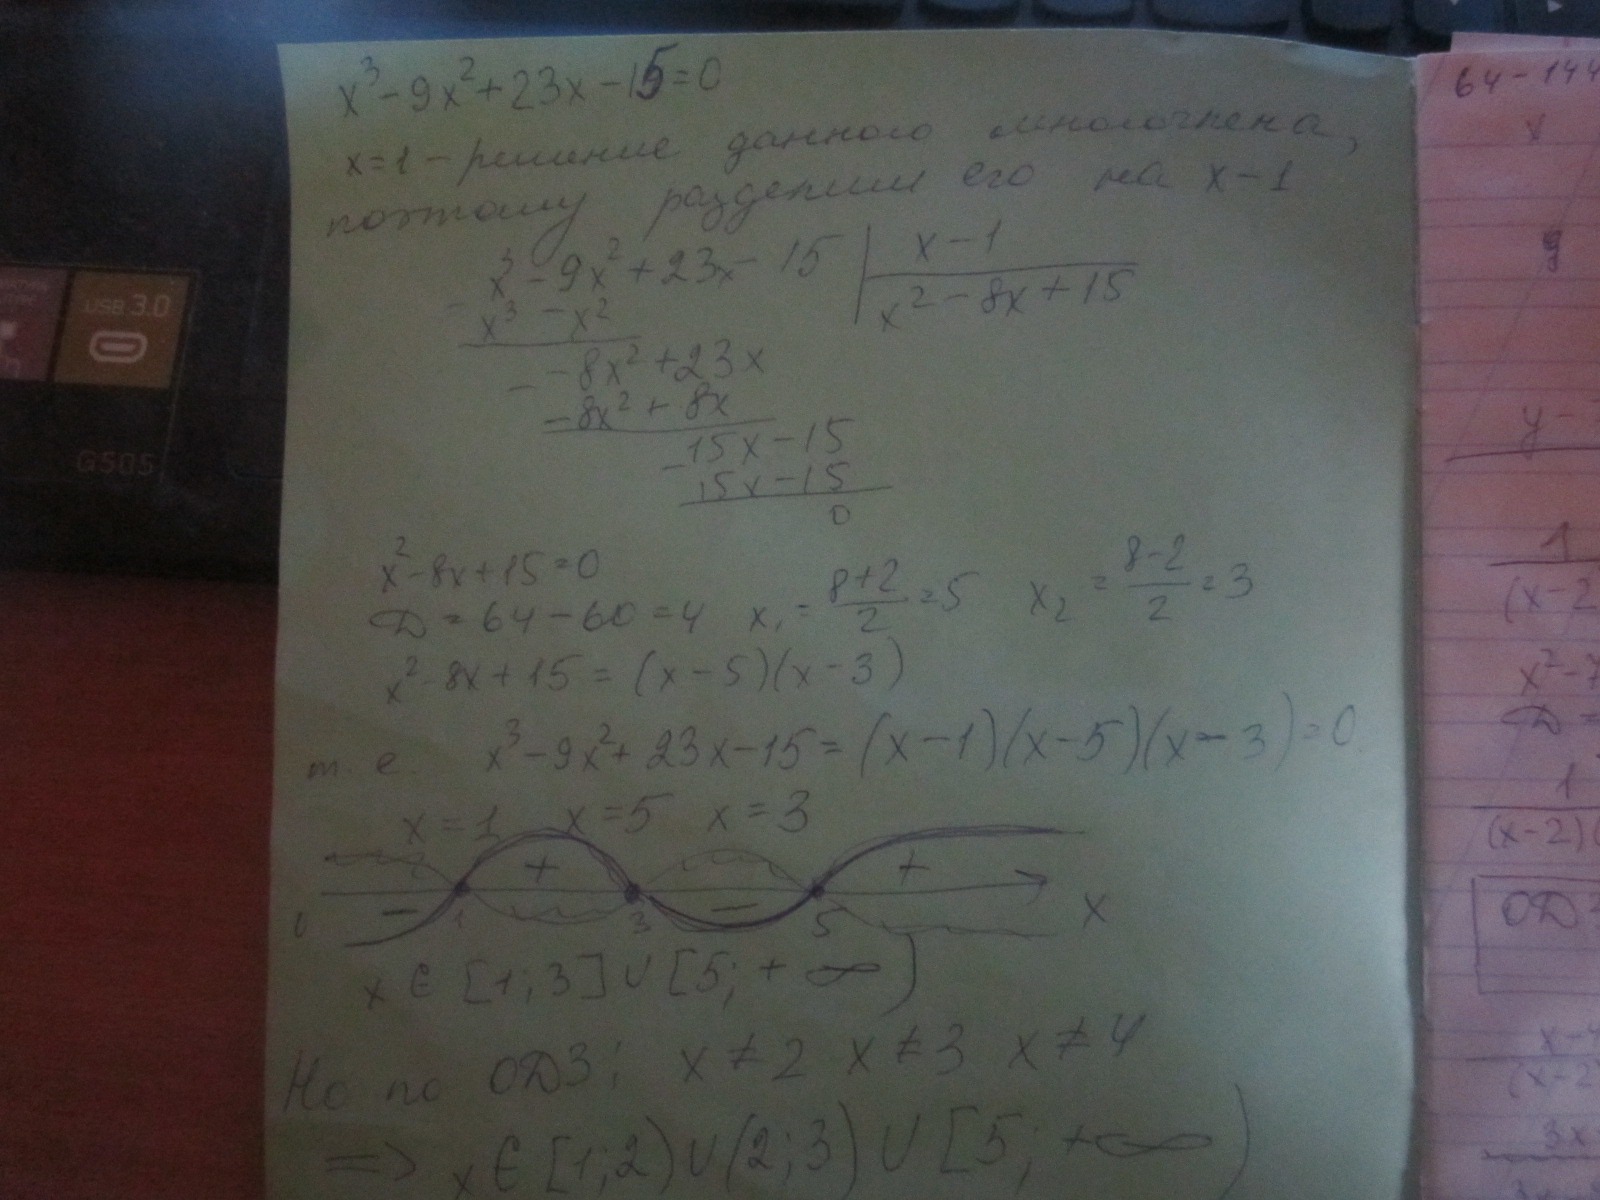 x³-9x²+23x-15=0
x=1 - решение данного многочлена,
поэтому разделим его на x-1
x³-9x²+23x-15 | x-1
x³-x²
x²-8x+15
-8x²+23x
-8x²+8x
15x-15
15x-15
0
x²-8x+15=0
D=64-60=4 x₁=(8+2)/2=5 x₂=(8-2)/2=3
x²-8x+15=(x-5)(x-3)
т.е. x³-9x²+23x-15=(x-1)(x-5)(x-3)=0
x=1 x=5 x=3
+ +
- 1 3 - 5 x
x∈[1;3]∪[5;+∞)
Но по ОДЗ: x≠2 x≠3 x≠4
=> x∈[1;2)∪(2;3)∪[5;+∞)
USB 3.0
G505
64-144
x
y-
1
(x-2
x²-7
D=
1
(x-2)(
ОДЗ
x-4
(x-2
3x